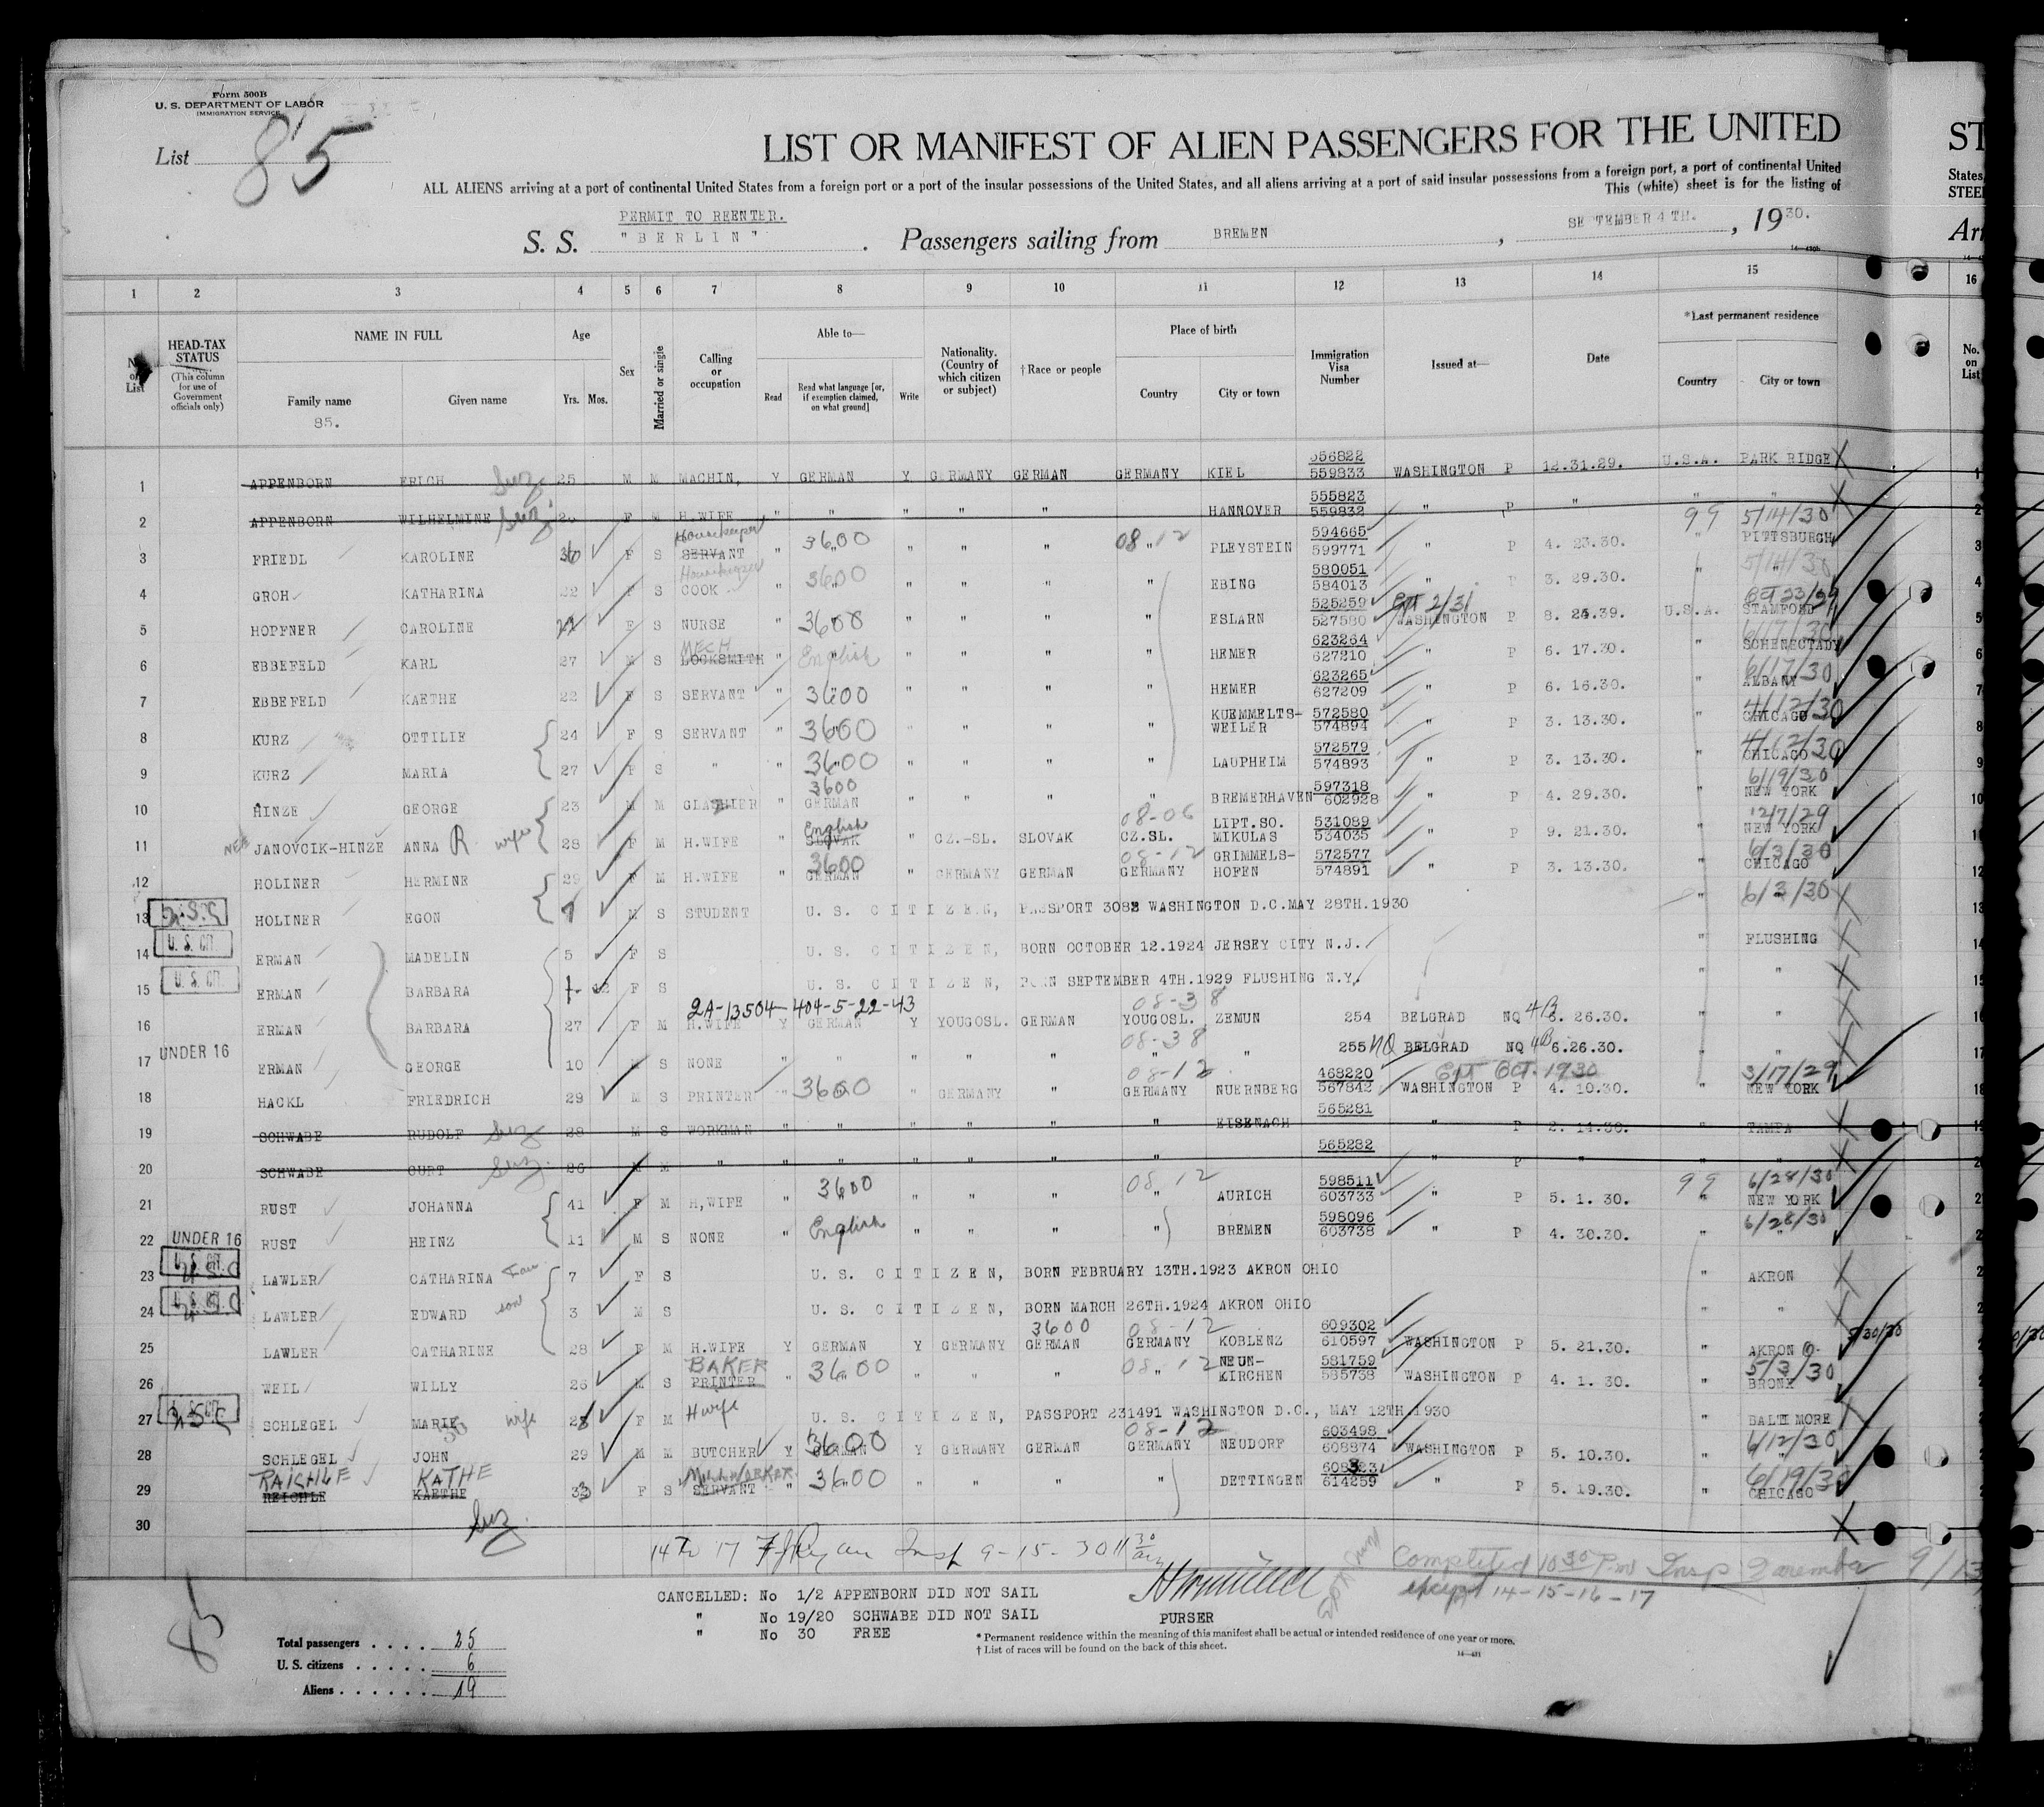 Form 500B
U. S. DEPARTMENT OF LABOR
IMMIGRATION SERVICE
List 85
LIST OR MANIFEST OF ALIEN PASSENGERS FOR THE UNITED
ALL ALIENS arriving at a port of continental United States from a foreign port or a port of the insular possessions of the United States, and all aliens arriving at a port of said insular possessions from a foreign port, a port of continental United
This (white) sheet is for the listing of
PERMIT TO REENTER.
S. S. "BERLIN" . Passengers sailing from BREMEN , SEPTEMBER 4 TH. , 1930.
1 2 3 4 5 6 7 8 9 10 11 12 13 14 15 16
No. on List
HEAD-TAX STATUS (This column for use of Government officials only)
NAME IN FULL Family name Given name
85.
Age Yrs. Mos.
Sex
Married or single
Calling or occupation
Able to— Read Read what language [or, if exemption claimed, on what ground] Write
Nationality. (Country of which citizen or subject)
† Race or people
Place of birth Country City or town
Immigration Visa Number
Issued at—
Date
*Last permanent residence Country City or town
No. on List
1 APPENBORN ERICH 25 M M MACHIN, Y GERMAN Y GERMANY GERMAN GERMANY KIEL 556822 559833 WASHINGTON P 12.31.29. U.S.A. PARK RIDGE
2 APPENBORN WILHELMINE 26 F M H.WIFE " " " " " " HANNOVER 555823 559832 " P " " "
3 FRIEDL KAROLINE 36 F S SERVANT Housekeeper " 3600 " " " 08 " 12 PLEYSTEIN 594665 599771 " P 4. 23.30. 99 " 5/14/30 PITTSBURGH
4 GROH KATHARINA 22 F S COOK Housekeeper " 3600 " " " " EBING 580051 584013 " P 3. 29.30. " 5/14/30
5 HOPFNER CAROLINE F S NURSE " 3600 " " " " ESLARN 525259 527580 WASHINGTON P U.S.A. STAMFORD
6 EBBEFELD KARL 27 M S LOCKSMITH MECH " English " " " " HEMER 623264 627210 " P 6. 17.30. " 6/17/30 SCHENECTADY
7 EBBEFELD KAETHE 22 F S SERVANT " 3600 " " " " HEMER 623265 627209 " P 6. 16.30. " 6/17/30 ALBANY
8 KURZ OTTILIE 24 F S SERVANT " 3600 " " " " KUEMMELTS-WEILER 572580 574894 " P 3. 13.30. " 4/12/30 CHICAGO
9 KURZ MARIA 27 F S " " 3600 " " " " LAUPHEIM 572579 574893 " P 3. 13.30. " 4/12/30 CHICAGO
10 HINZE GEORGE 23 M M " 3600 GERMAN " " " " BREMERHAVEN 597318 602928 " P 4. 29.30. " 6/19/30 NEW YORK
11 NEE JANOVCIK-HINZE ANNA R wife 28 F M H.WIFE " English SLOVAK " CZ.-SL. SLOVAK 08-06 CZ.SL. LIPT.SO. MIKULAS 531089 534035 " P 9. 21.30. " 12/7/29 NEW YORK
12 HOLINER HERMINE 29 F M H.WIFE " 3600 GERMAN " GERMANY GERMAN 08-12 GERMANY GRIMMELS-HOFEN 572577 574891 " P 3. 13.30. " 6/3/30 CHICAGO
13 HOLINER EGON 7 M S STUDENT U. S. CITIZEN, PASSPORT 3088 WASHINGTON D.C.MAY 28TH.1930 " 6/3/30
14 U. S. CIT. ERMAN MADELIN 5 F S U. S. CITIZEN, BORN OCTOBER 12.1924 JERSEY CITY N.J. " FLUSHING
15 U. S. CIT. ERMAN BARBARA F S U. S. CITIZEN, BORN SEPTEMBER 4TH.1929 FLUSHING N.Y. " "
2A-13504-404-5-22-43
16 ERMAN BARBARA 27 F M H.WIFE Y GERMAN Y YOUGOSL. GERMAN 08-38 YOUGOSL. ZEMUN 254 BELGRAD NQ 4B 6. 26.30. " "
17 UNDER 16 ERMAN GEORGE 10 M S NONE " " " " " 08-38 " " 255 NQ BELGRAD NQ 4B 6.26.30. " "
18 HACKL FRIEDRICH 29 M S PRINTER " 3600 " GERMANY " 08-12 GERMANY NUERNBERG 468220 567842 WASHINGTON P EXT OCT. 1930 4. 10.30. " 3/17/29 NEW YORK
19 SCHWABE RUDOLF 28 M S WORKMAN " " " " " " EISENACH 565281 " P 2. 14.30. " TAMPA
20 SCHWABE CURT 26 M M " " " " " " " " 565282 " P " " "
21 RUST JOHANNA 41 F M H,WIFE " 3600 " " " 08 " 12 AURICH 598511 603733 " P 5. 1. 30. 99 " 6/28/30 NEW YORK
22 UNDER 16 RUST HEINZ 11 M S NONE " English " " " " BREMEN 598096 603738 " P 4. 30.30. 6/28/30 "
23 U. S. CIT. LAWLER CATHARINA 7 F S U. S. CITIZEN, BORN FEBRUARY 13TH.1923 AKRON OHIO " AKRON
24 U. S. CIT. LAWLER EDWARD son 3 M S U. S. CITIZEN, BORN MARCH 26TH.1924 AKRON OHIO " "
25 LAWLER CATHARINE 28 F M H.WIFE Y GERMAN Y GERMANY 3600 GERMAN 08-12 GERMANY KOBLENZ 609302 610597 WASHINGTON P 5. 21.30. " AKRON O. 5/30/30
26 WEIL WILLY 26 M S BAKER PRINTER " 3600 " " " 08 " 12 NEUN-KIRCHEN 581759 585738 WASHINGTON P 4. 1. 30. " 5/3/30 BRONX
27 U. S. CIT. SCHLEGEL MARIE wife F M H wife U. S. CITIZEN, PASSPORT 231491 WASHINGTON D.C., MAY 12TH.1930 " BALTIMORE
28 SCHLEGEL JOHN 29 M M BUTCHER Y 3600 GERMAN Y GERMANY GERMAN 08-12 GERMANY NEUDORF 603498 608874 WASHINGTON P 5. 10.30. " 6/12/30 "
29 RAICHLE KATHE REICHLE KAETHE 33 F S SERVANT " 3600 " " " " DETTINGEN 614259 " P 5. 19.30. " 6/19/30 CHICAGO
30
14 To 17 Insp 9-15-30 11 30 am
Completed 10 30 P.M Insp 9/13
except 14-15-16-17
CANCELLED: No 1/2 APPENBORN DID NOT SAIL
" No 19/20 SCHWABE DID NOT SAIL
" No 30 FREE
PURSER
* Permanent residence within the meaning of this manifest shall be actual or intended residence of one year or more.
† List of races will be found on the back of this sheet.
85
Total passengers . . . . 25
U. S. citizens . . . . . 6
Aliens . . . . . . 19